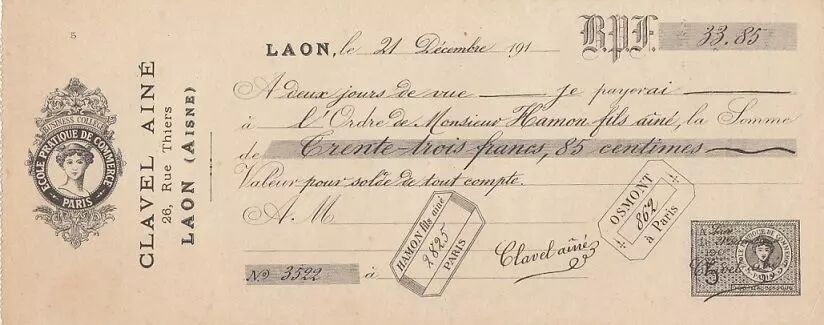 5
LAON, le 21 Décembre 191
B.P.F. 33.85
A deux jours de vue je payerai
à l'Ordre de Monsieur Hamon fils aîné, la Somme
de Trente-trois francs, 85 centimes
Valeur pour solde de tout compte.
A M
No 3522 à
Clavel aîné
HAMON fils aîné
2825
PARIS
OSMONT
862
à Paris
BUSINESS COLLEGE
ECOLE PRATIQUE DE COMMERCE
PARIS
CLAVEL AINÉ
26, Rue Thiers
LAON (AISNE)
Clavel
5